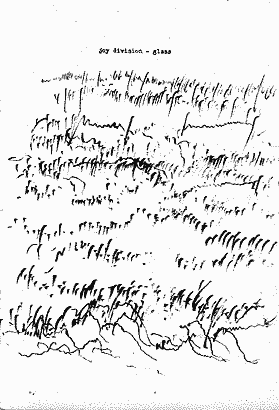 joy division - glass